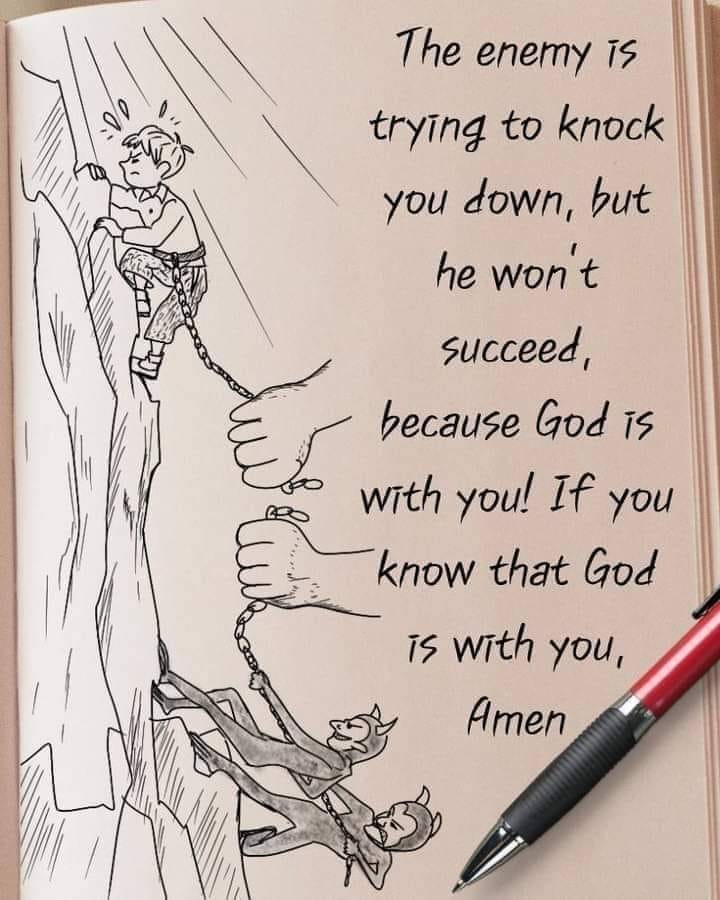 The enemy is
trying to knock
you down, but
he won't
succeed,
because God is
with you! If you
know that God
is with you,
Amen